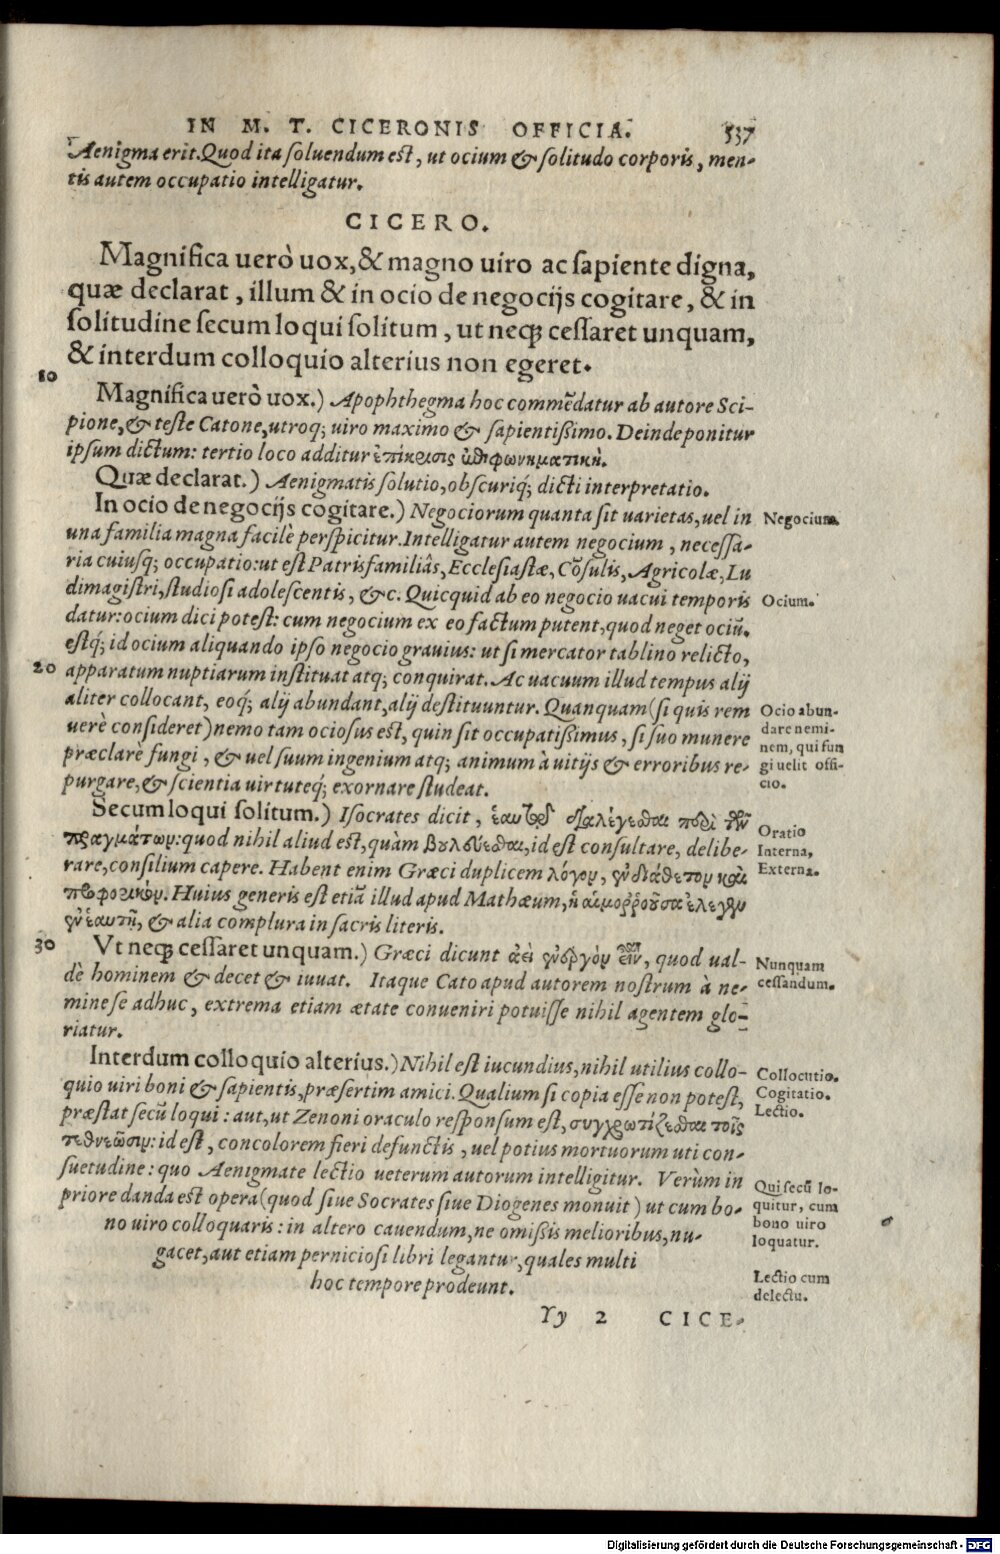 IN M. T. CICERONIS OFFICIA. 537
Aenigma erit. Quod ita soluendum est, ut ocium & solitudo corporis, men-
tis autem occupatio intelligatur.
CICERO.
Magnifica uerò uox, & magno uiro ac sapiente digna,
quæ declarat, illum & in ocio de negocijs cogitare, & in
solitudine secum loqui solitum, ut neq; cessaret unquam,
& interdum colloquio alterius non egeret.
10
Magnifica uerò uox.) Apophthegma hoc commēdatur ab autore Sci-
pione, & teste Catone, utroq; uiro maximo & sapientissimo. Deinde ponitur
ipsum dictum: tertio loco additur ἐπίκρισις ἐπιφωνηματική.
Quæ declarat.) Aenigmatis solutio, obscuriq́; dicti interpretatio.
In ocio de negocijs cogitare.) Negociorum quanta sit uarietas, uel in
Negocium.
una familia magna facilè perspicitur. Intelligatur autem negocium, necessa-
ria cuiusq; occupatio: ut est Patrisfamiliâs, Ecclesiastæ, Cōsulis, Agricolæ, Lu
dimagistri, studiosi adolescentis, &c. Quicquid ab eo negocio uacui temporis
Ocium.
datur: ocium dici potest: cum negocium ex eo factum putent, quod neget ociū.
estq́; id ocium aliquando ipso negocio grauius: ut si mercator tablino relicto,
20
apparatum nuptiarum instituat atq; conquirat. Ac uacuum illud tempus alij
aliter collocant, eoq́; alij abundant, alij destituuntur. Quanquam (si quis rem
uerè consideret) nemo tam ociosus est, quin sit occupatissimus, si suo munere
præclarè fungi, & uel suum ingenium atq; animum à uitijs & erroribus re-
purgare, & scientia uirtuteq́; exornare studeat.
Ocio abun-
dare nemi-
nem, qui fun
gi uelit offi-
cio.
Secum loqui solitum.) Isocrates dicit, ἑαυτῷ διαλέγεσθαι περὶ τῶν
πραγμάτων: quod nihil aliud est, quàm βουλεύεσθαι, id est consultare, delibe-
rare, consilium capere. Habent enim Græci duplicem λόγον, ἐνδιάθετον καὶ
προφορικόν. Huius generis est etiā illud apud Mathæum, ἡ αἱμορροῦσα ἔλεγεν
ἐν ἑαυτῇ, & alia complura in sacris literis.
Oratio
Interna,
Externa.
30
Vt neq; cessaret unquam.) Græci dicunt ἀεὶ ἐνεργὸν εἶναι, quod ual-
dè hominem & decet & iuuat. Itaque Cato apud autorem nostrum à ne-
mine se adhuc, extrema etiam ætate conueniri potuisse nihil agentem glo-
riatur.
Nunquam
cessandum.
Interdum colloquio alterius.) Nihil est iucundius, nihil utilius collo-
quio uiri boni & sapientis, præsertim amici. Qualium si copia esse non potest,
præstat secū loqui: aut, ut Zenoni oraculo responsum est, συγχρωτίζεσθαι τοῖς
τεθνεῶσιν: id est, concolorem fieri defunctis, uel potius mortuorum uti con-
suetudine: quo Aenigmate lectio ueterum autorum intelligitur. Verùm in
priore danda est opera (quod siue Socrates siue Diogenes monuit) ut cum bo-
no uiro colloquaris: in altero cauendum, ne omissis melioribus, nu-
gacet, aut etiam perniciosi libri legantur, quales multi
hoc tempore prodeunt.
Collocutio.
Cogitatio.
Lectio.
Qui secū lo-
quitur, cum
bono uiro
loquatur.
Lectio cum
delectu.
Yy 2 CICE-
Digitalisierung gefördert durch die Deutsche Forschungsgemeinschaft - DFG